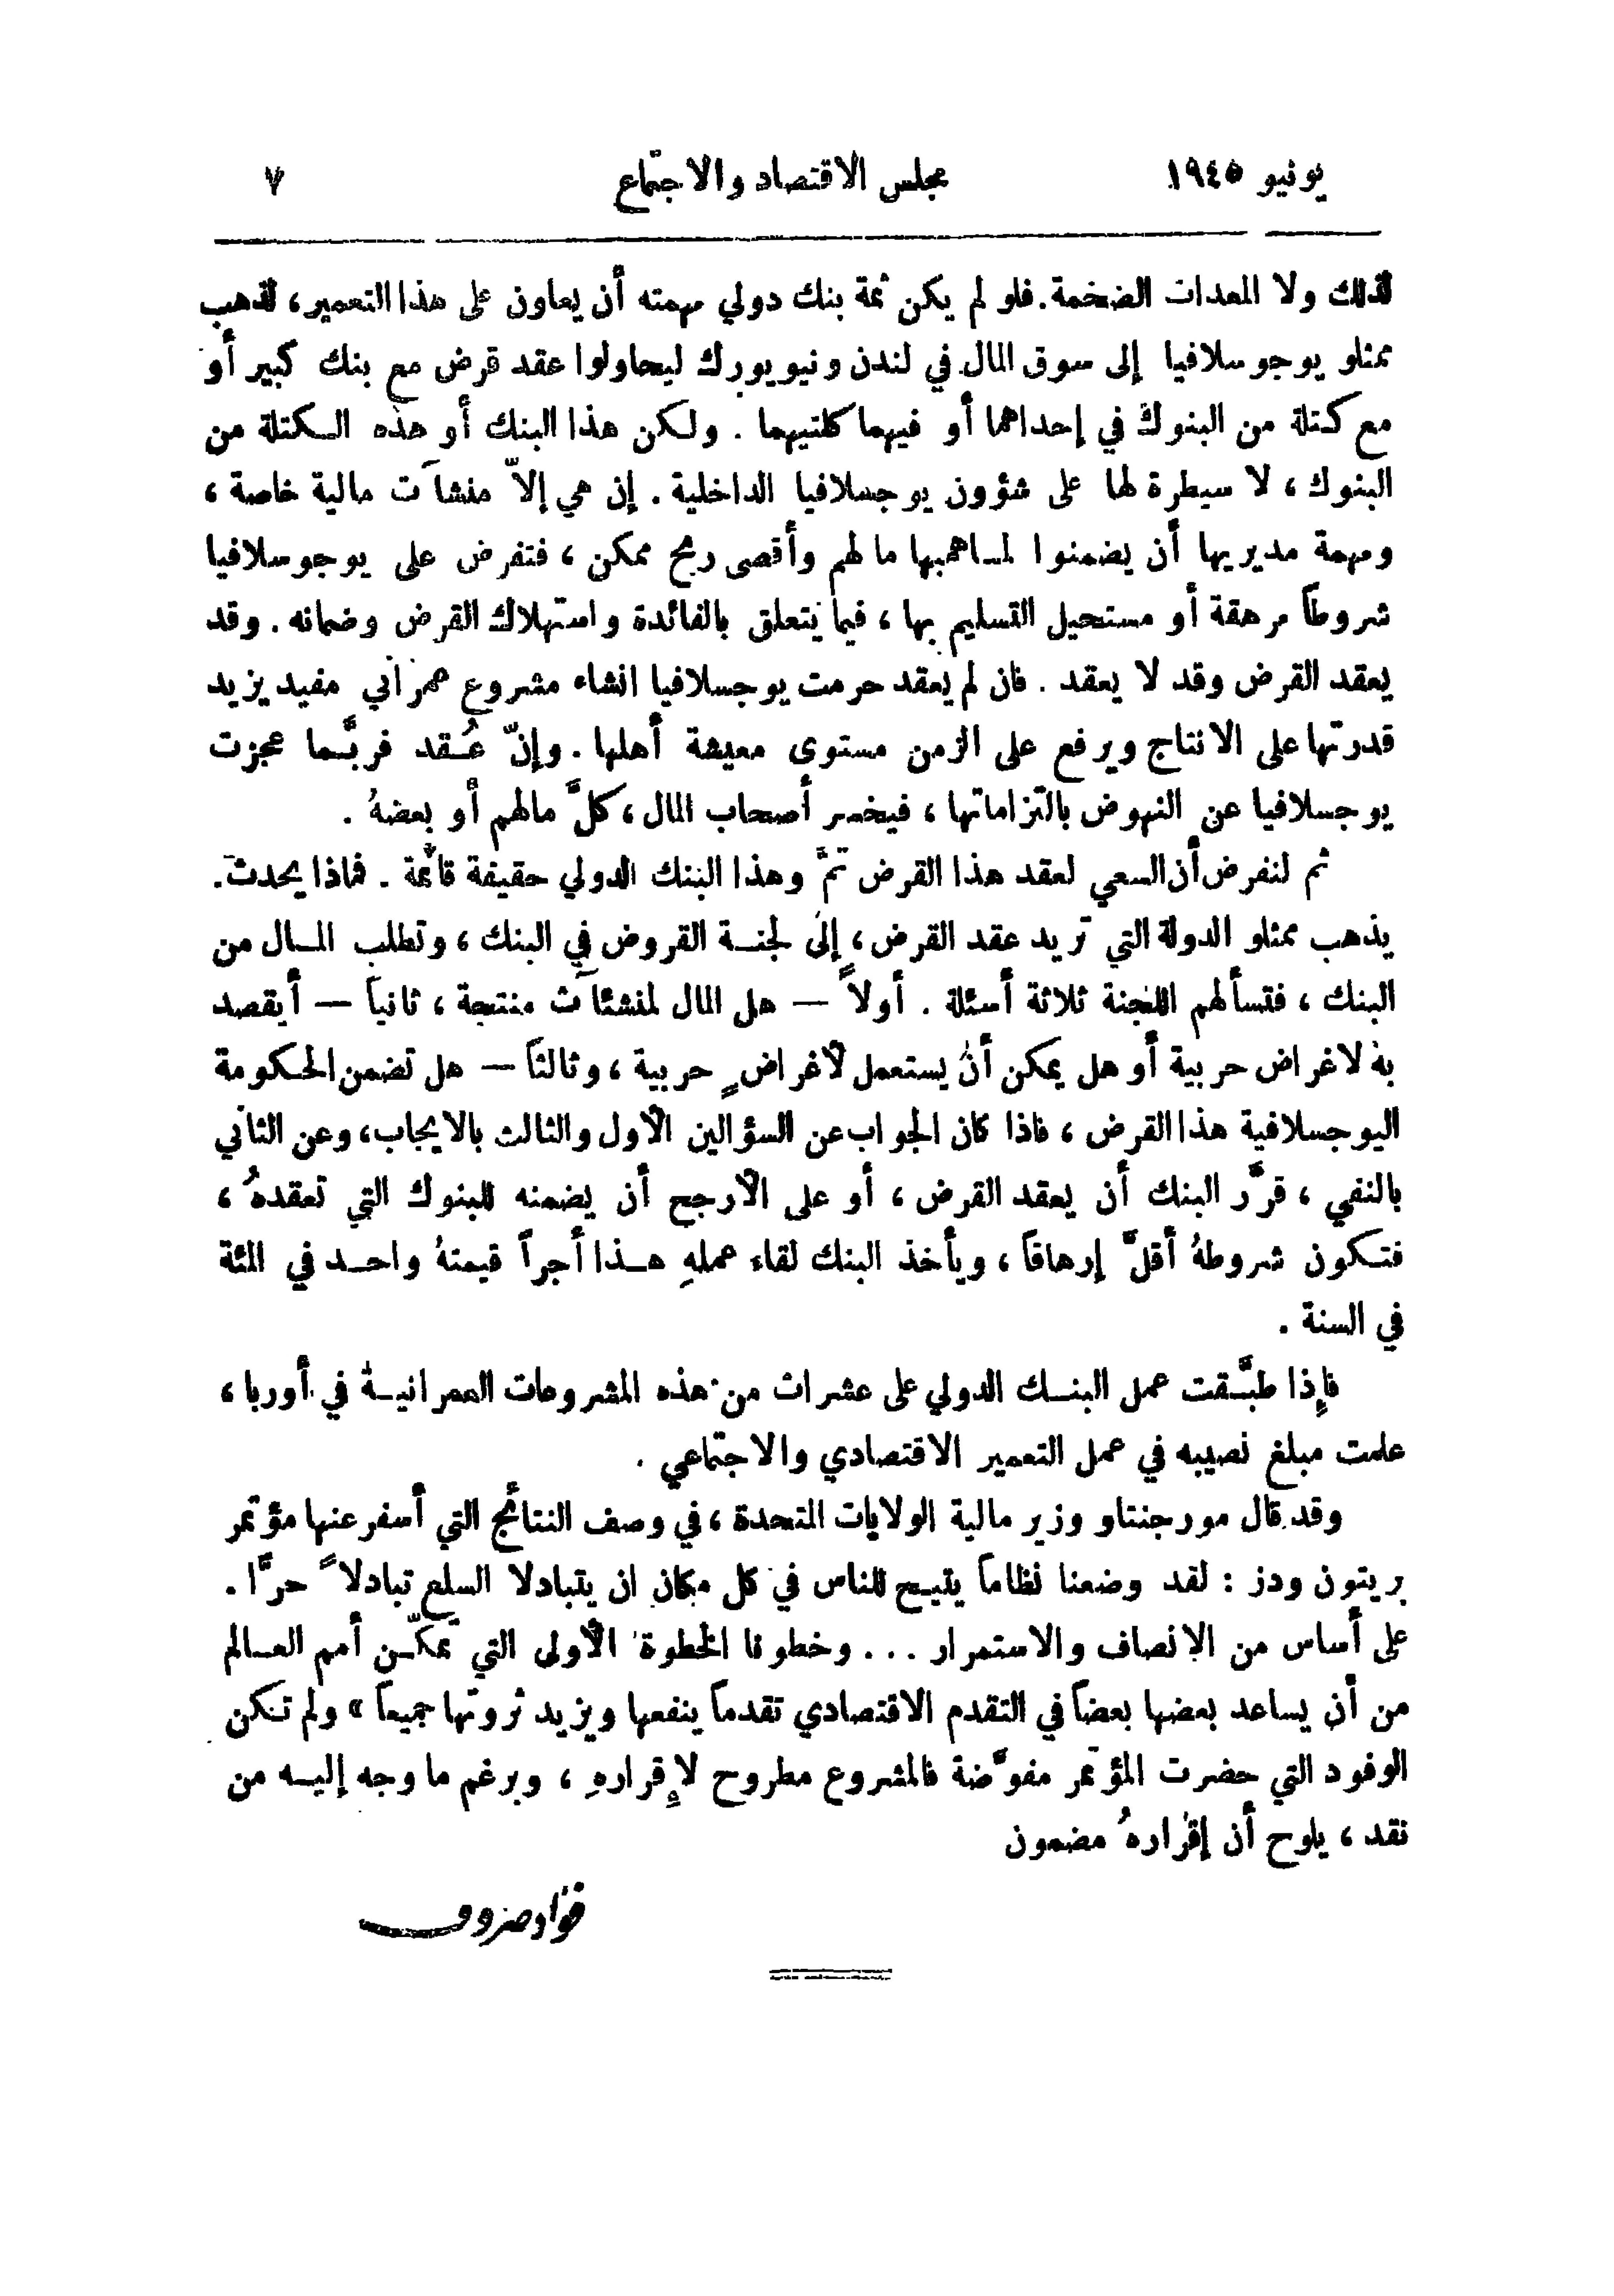 يونيو ١٩٤٥ مجلس الاقتصاد والاجتماع ٧
لذلك ولا المعدات الضخمة. فلو لم يكن ثمة بنك دولي مهمته أن يعاون على هذا التعمير، لذهب
ممثلو يوجوسلافيا إلى سوق المال في لندن ونيويورك ليحاولوا عقد قرض مع بنك كبير أو
مع كتلة من البنوك في إحداهما أو فيهما كلتيهما . ولكن هذا البنك أو هذه الكتلة من
البنوك ، لا سيطرة لها على شؤون يوجسلافيا الداخلية . إن هي إلاّ منشآت مالية خاصة ،
ومهمة مديريها أن يضمنوا لمساهميها مالهم وأقصى ربح ممكن ، فتفرض على يوجوسلافيا
شروطاً مرهقة أو مستحيل التسليم بها ، فيما يتعلق بالفائدة واستهلاك القرض وضمانه . وقد
يعقد القرض وقد لا يعقد . فان لم يعقد حرمت يوجسلافيا انشاء مشروع عمراني مفيد يزيد
قدرتها على الانتاج ويرفع على الزمن مستوى معيشة أهلها . وإنّ عُقد فربَّما عجزت
يوجسلافيا عن النهوض بالتزاماتها ، فيخسر أصحاب المال ، كلَّ مالهم أو بعضهُ .
ثم لنفرض أن السعي لعقد هذا القرض تمَّ وهذا البنك الدولي حقيقة قائمة . فماذا يحدث.
يذهب ممثلو الدولة التي تريد عقد القرض ، إلى لجنة القروض في البنك ، وتطلب المال من
البنك ، فتسألهم اللجنة ثلاثة أسئلة . أولاً — هل المال لمنشئآت منتجة ، ثانياً — أيقصد
به لاغراض حربية أو هل يمكن أن يستعمل لأغراضٍ حربية ، وثالثاً — هل تضمن الحكومة
اليوجسلافية هذا القرض ، فاذا كان الجواب عن السؤالين الأول والثالث بالايجاب، وعن الثاني
بالنفي ، قرَّر البنك أن يعقد القرض ، أو على الأرجح أن يضمنه للبنوك التي تعقدهُ ،
فتكون شروطهُ أقلَّ إرهاقاً ، ويأخذ البنك لقاء عملهِ هذا أجراً قيمتهُ واحد في المئة
في السنة .
فإِذا طبَّقت عمل البنك الدولي على عشرات من هذه المشروعات العمرانية في أوربا ،
علمت مبلغ نصيبه في عمل التعمير الاقتصادي والاجتماعي .
وقد قال مورجنتاو وزير مالية الولايات المتحدة ، في وصف النتائج التي أسفر عنها مؤتمر
بريتون ودز : لقد وضعنا نظاماً يتيح للناس في كل مكان ان يتبادلا السلع تبادلاً حرًّا .
على أساس من الإنصاف والاستمرار ... وخطونا الخطوة الأولى التي تمكّن أمم العالم
من أن يساعد بعضها بعضاً في التقدم الاقتصادي تقدماً ينفعها ويزيد ثروتها جميعاً » ولم تكن
الوفود التي حضرت المؤتمر مفوَّضة فالمشروع مطروح لإِقرارهِ ، وبرغم ما وجه إليه من
نقد ، يلوح أن إقرارهُ مضمون
فؤاد صروف